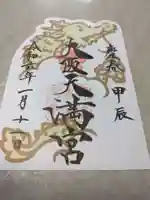 甲辰
大阪天満宮
令和六年一月十一日